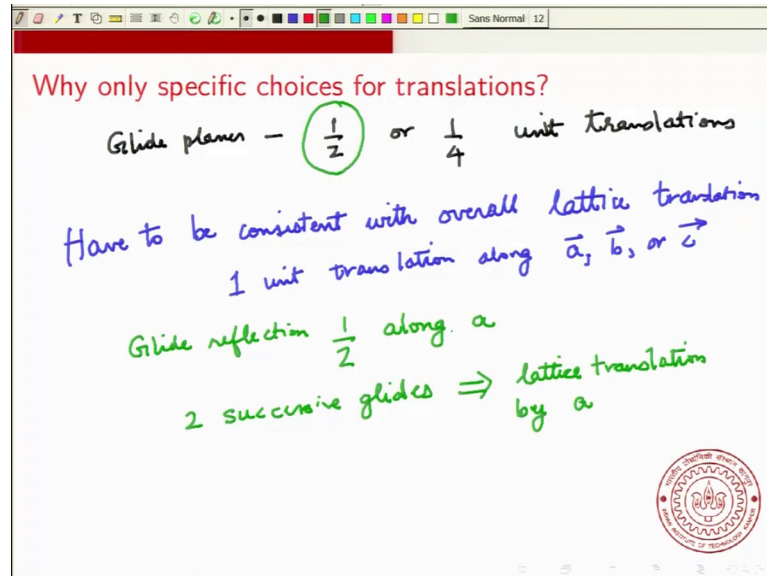 Sans Normal 12
Why only specific choices for translations?
Glide planes - 1/2 or 1/4 unit translations
Have to be consistent with overall lattice translation
1 unit translation along a⃗, b⃗, or c⃗
Glide reflection 1/2 along a
2 successive glides ⇒ lattice translation
by a
INDIAN INSTITUTE OF TECHNOLOGY KANPUR